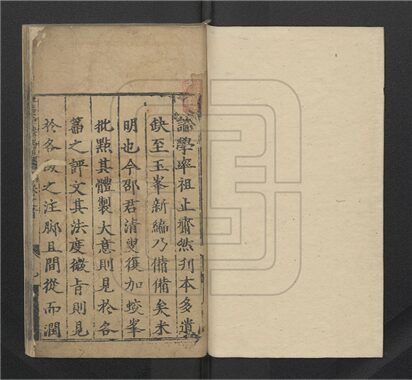 論學率祖止齋然刊本多遺
缺至玉峯新編乃備備矣未
明也今邵君清叟復加蛟峯
批點其體製大意則見於各
篇之評文其法度微旨則見
於各段之注腳且間從而潤